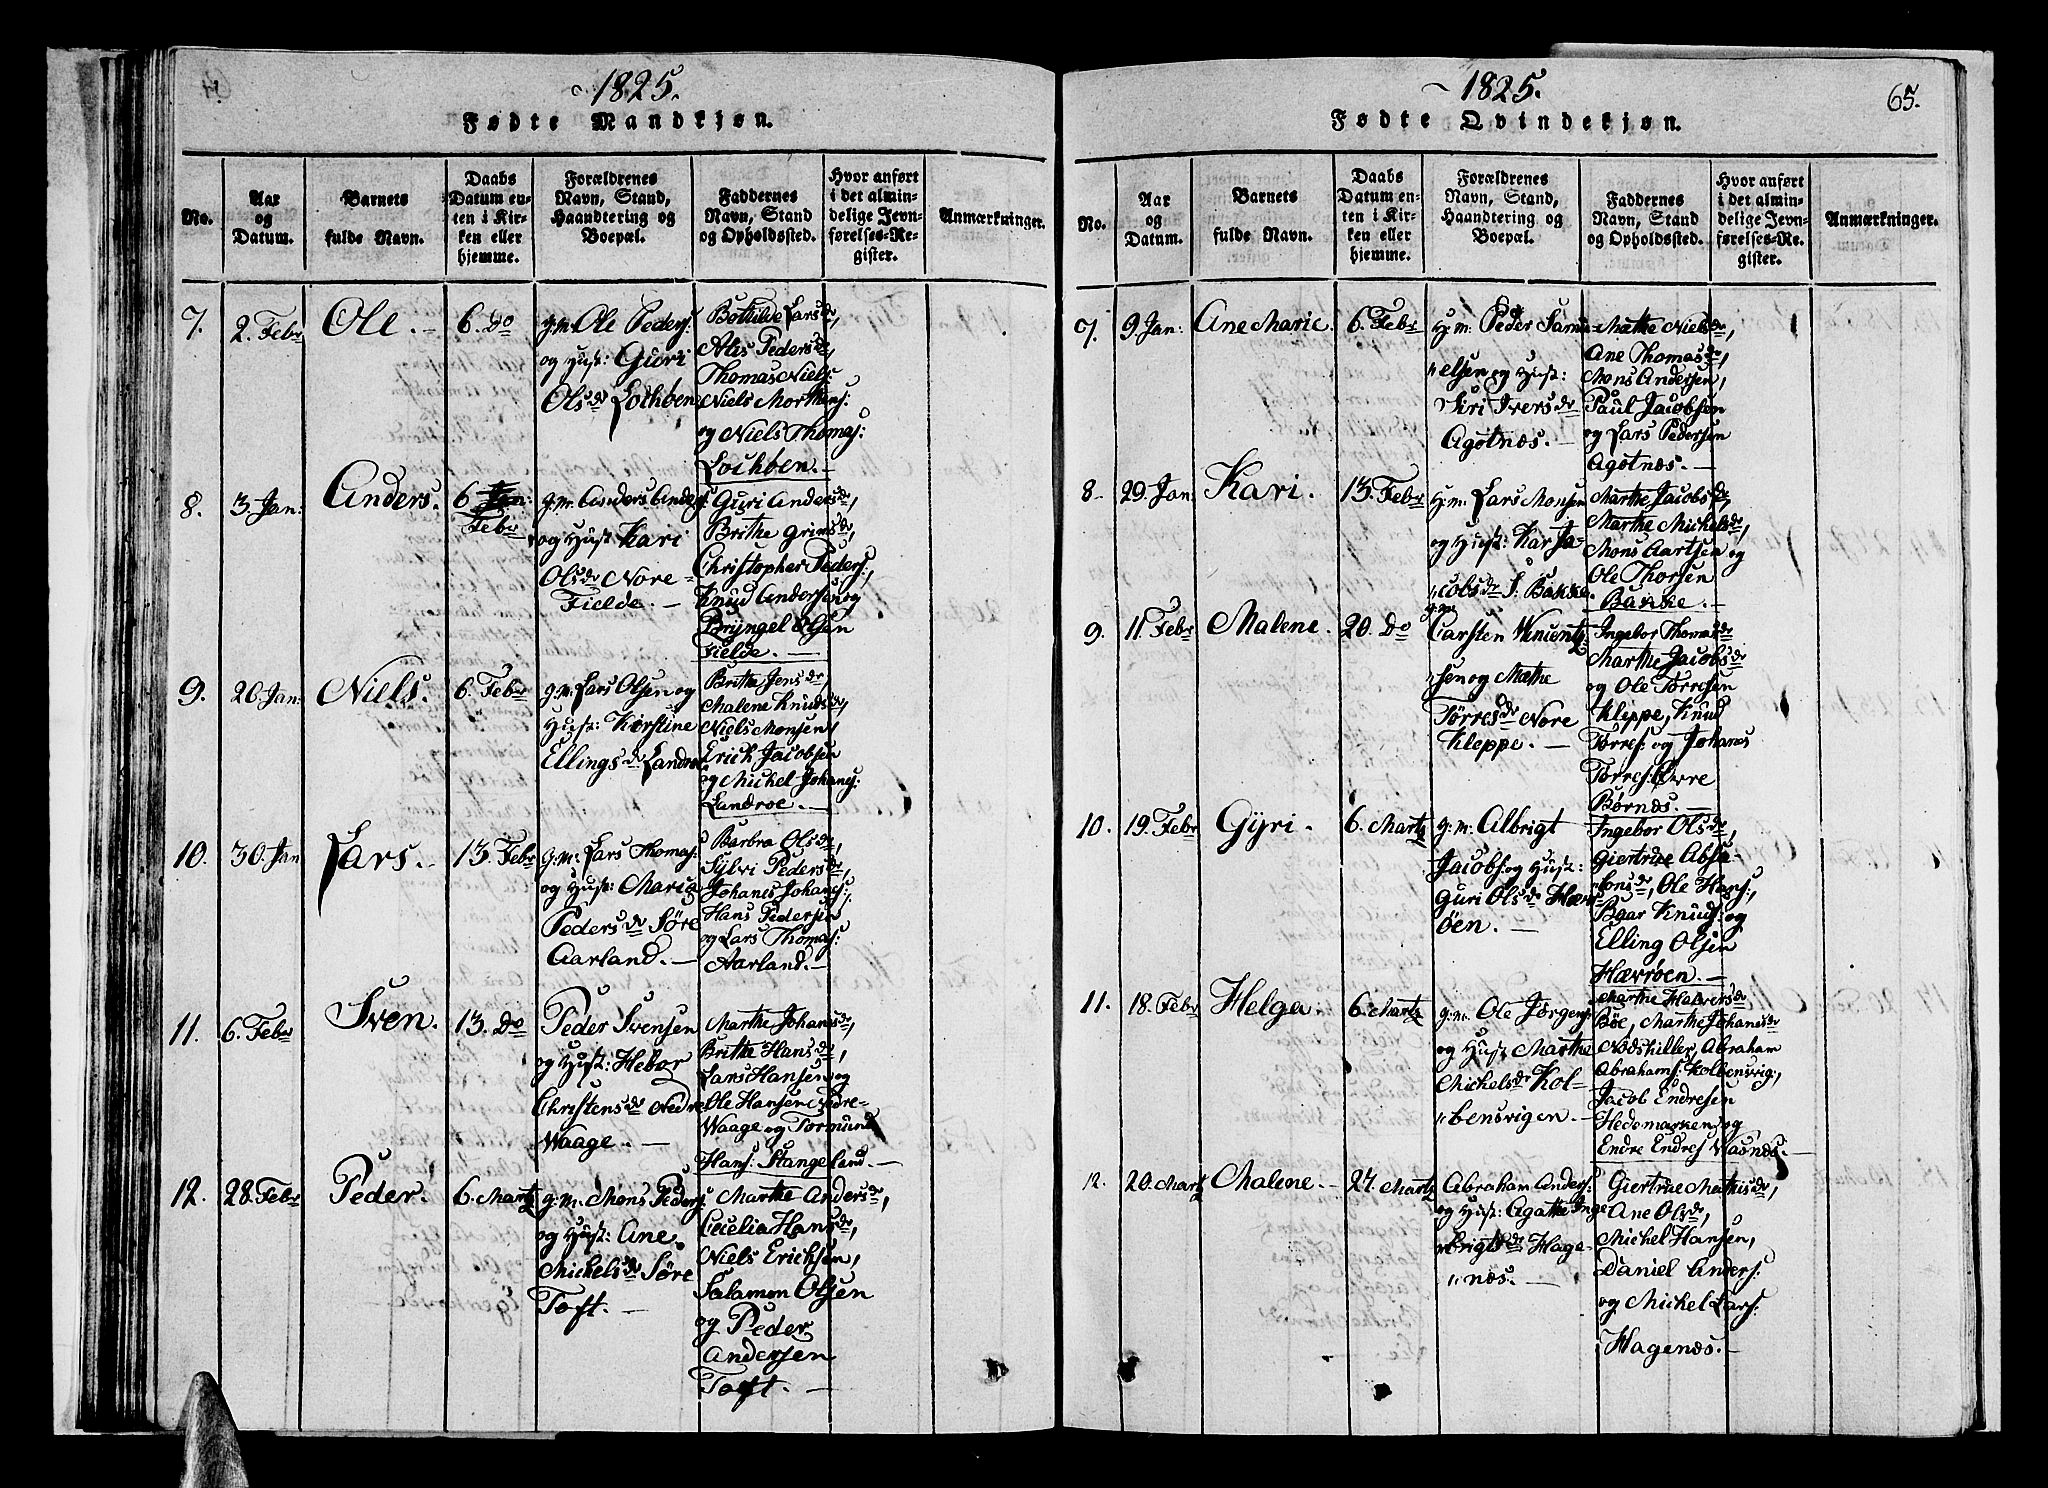 1825.
Fødte Mandkjøn.
No.
Aar
og
Datum.
Barnets
fulde Navn.
Daabs
Datum en-
ten i Kir-
ken eller
hjemme.
Forældrenes
Navn, Stand,
Haandtering og
Boepæl.
Faddernes
Navn, Stand
og Opholdssted.
Hvor anført
i det almin-
delige Jevn-
førelses-Re-
gister.
Anmærkninger.
7.
2. Febr
Ole.
6. Do
g.m. Ole Peders:
og Hust: Giøri
Olsdr Lothben
Bothilde Larsdr,
Alis Pedersdr,
Thomas Niels:
Niels Morthens:
og Niels Thomas:
Lochben.
8.
3. Jan:
Anders.
6. Jan:
Febr
g.m. Anders Anders:
og Hust Kari
Olsdr Nore-
Fielde.
Guri Andersdr,
Brithe Grimsdr,
Christopher Peders:,
Knud Andersen og
Bryngel Olsen
Fielde.
9.
20. Jan:
Niels.
6. Febr
g.m. Lars Olsen og
Hust: Kørstine
Ellingsdr Landroe
Brithe Jensdr,
Malene Knudsdr,
Niels Monsen,
Erich Jacobsen
og Michel Johans:
Landroe.
10.
30. Jan
Lars.
13. Febr
g.m. Lars Thomas:
og Hust: Maria
Pedersdr Søre
Aarland.
Barbra Olsdr,
Sylvi Pedersdr,
Johanes Johans:,
Hans Pedersen
og Lars Thomas:
Aarland.
11.
6. Febr
Sven.
13. Do
Peder Svensen
og Hust: Hebor
Christensdr Nedre
Waage.
Marthe Johansdr,
Brithe Hansdr,
Lars Hansen og
Ole Hansen Nedre-
Waage og Tormund
Hans: Stangeland.
12.
28. Febr
Peder.
6. Martz
g.m. Mons Peders:
og Hust: Ane
Michelsdr Søre
Toft.
Marthe Andersdr,
Cecelia Hansdr,
Niels Erichsen,
Salamon Olsen
og Peder
Andersen
Toft.
1825.
65.
Fødte Qvindekjøn.
No.
Aar
og
Datum.
Barnets
fulde Navn.
Daabs
Datum en-
ten i Kir-
ken eller
hjemme.
Forældrenes
Navn, Stand,
Haandtering og
Boepæl.
Faddernes
Navn, Stand
og Opholdssted.
Hvor anført
i det almin-
delige Jevn-
førelses-Re-
gister.
Anmærkninger.
7.
9. Jan:
Ane Marie.
6. Febr
H.m. Peder Samu-
elsen og Hust:
Siri Iversdr
Agotnæs.
Mæthe Nielsdr,
Ane Thomasdr,
Mons Andersen,
Paul Jacobsen
og Lars Pedersen
Agotnæs.
8.
29. Jan:
Kari.
13. Febr
H.m. Lars Monsen
og Hust: Kar Ja-
cobsdr S: Bakke.
Marthe Jacobsdr,
Marthe Michelsdr,
Mons Aartsen og
Ole Thorsen
Bakke.
9.
11. Febr
Malene.
20. Do
g.m.
Carsten Winientz
sen og Mæthe
Torresdr Nore
Kleppe.
Ingebor Thomasdr
Marthe Jacobsdr
og Ole Torresen
Kleppe, Knud
Torres: og Johanes
Torres: Øvre
Børnæs.
10.
19. Febr
Gyri.
6. Martz
g.m. Albrigt
Jacobs: og Hust:
Guri Olsdr Hærr-
øen.
Ingebor Olsdr,
Giertrue Absa-
lonsdr, Ole Hans:,
Baar Knuds: og
Elling Olsen
Hærrøen.
11.
18. Febr
Helga.
6. Martz
g.m. Ole Jørgens:
og Hust Marthe
Michelsdr Kol-
bensvigen.
Marthe Halversdr
Bøe, Marthe Johanesdr
Nodshiller, Abraham
Abrahams: Kolbensvig:,
Jacob Endresen
Hedemarken og
Endre Endres: Wasnæs.
12.
20. Martz
Malene.
27. Martz
Abraham Anders:
og Hust: Agathe Inge
brigtsdr Hage-
næs.
Giertrue Mathisdr,
Ane Olsdr,
Michel Hansen,
Daniel Anders:
og Michel Lars:
Hagenæs.